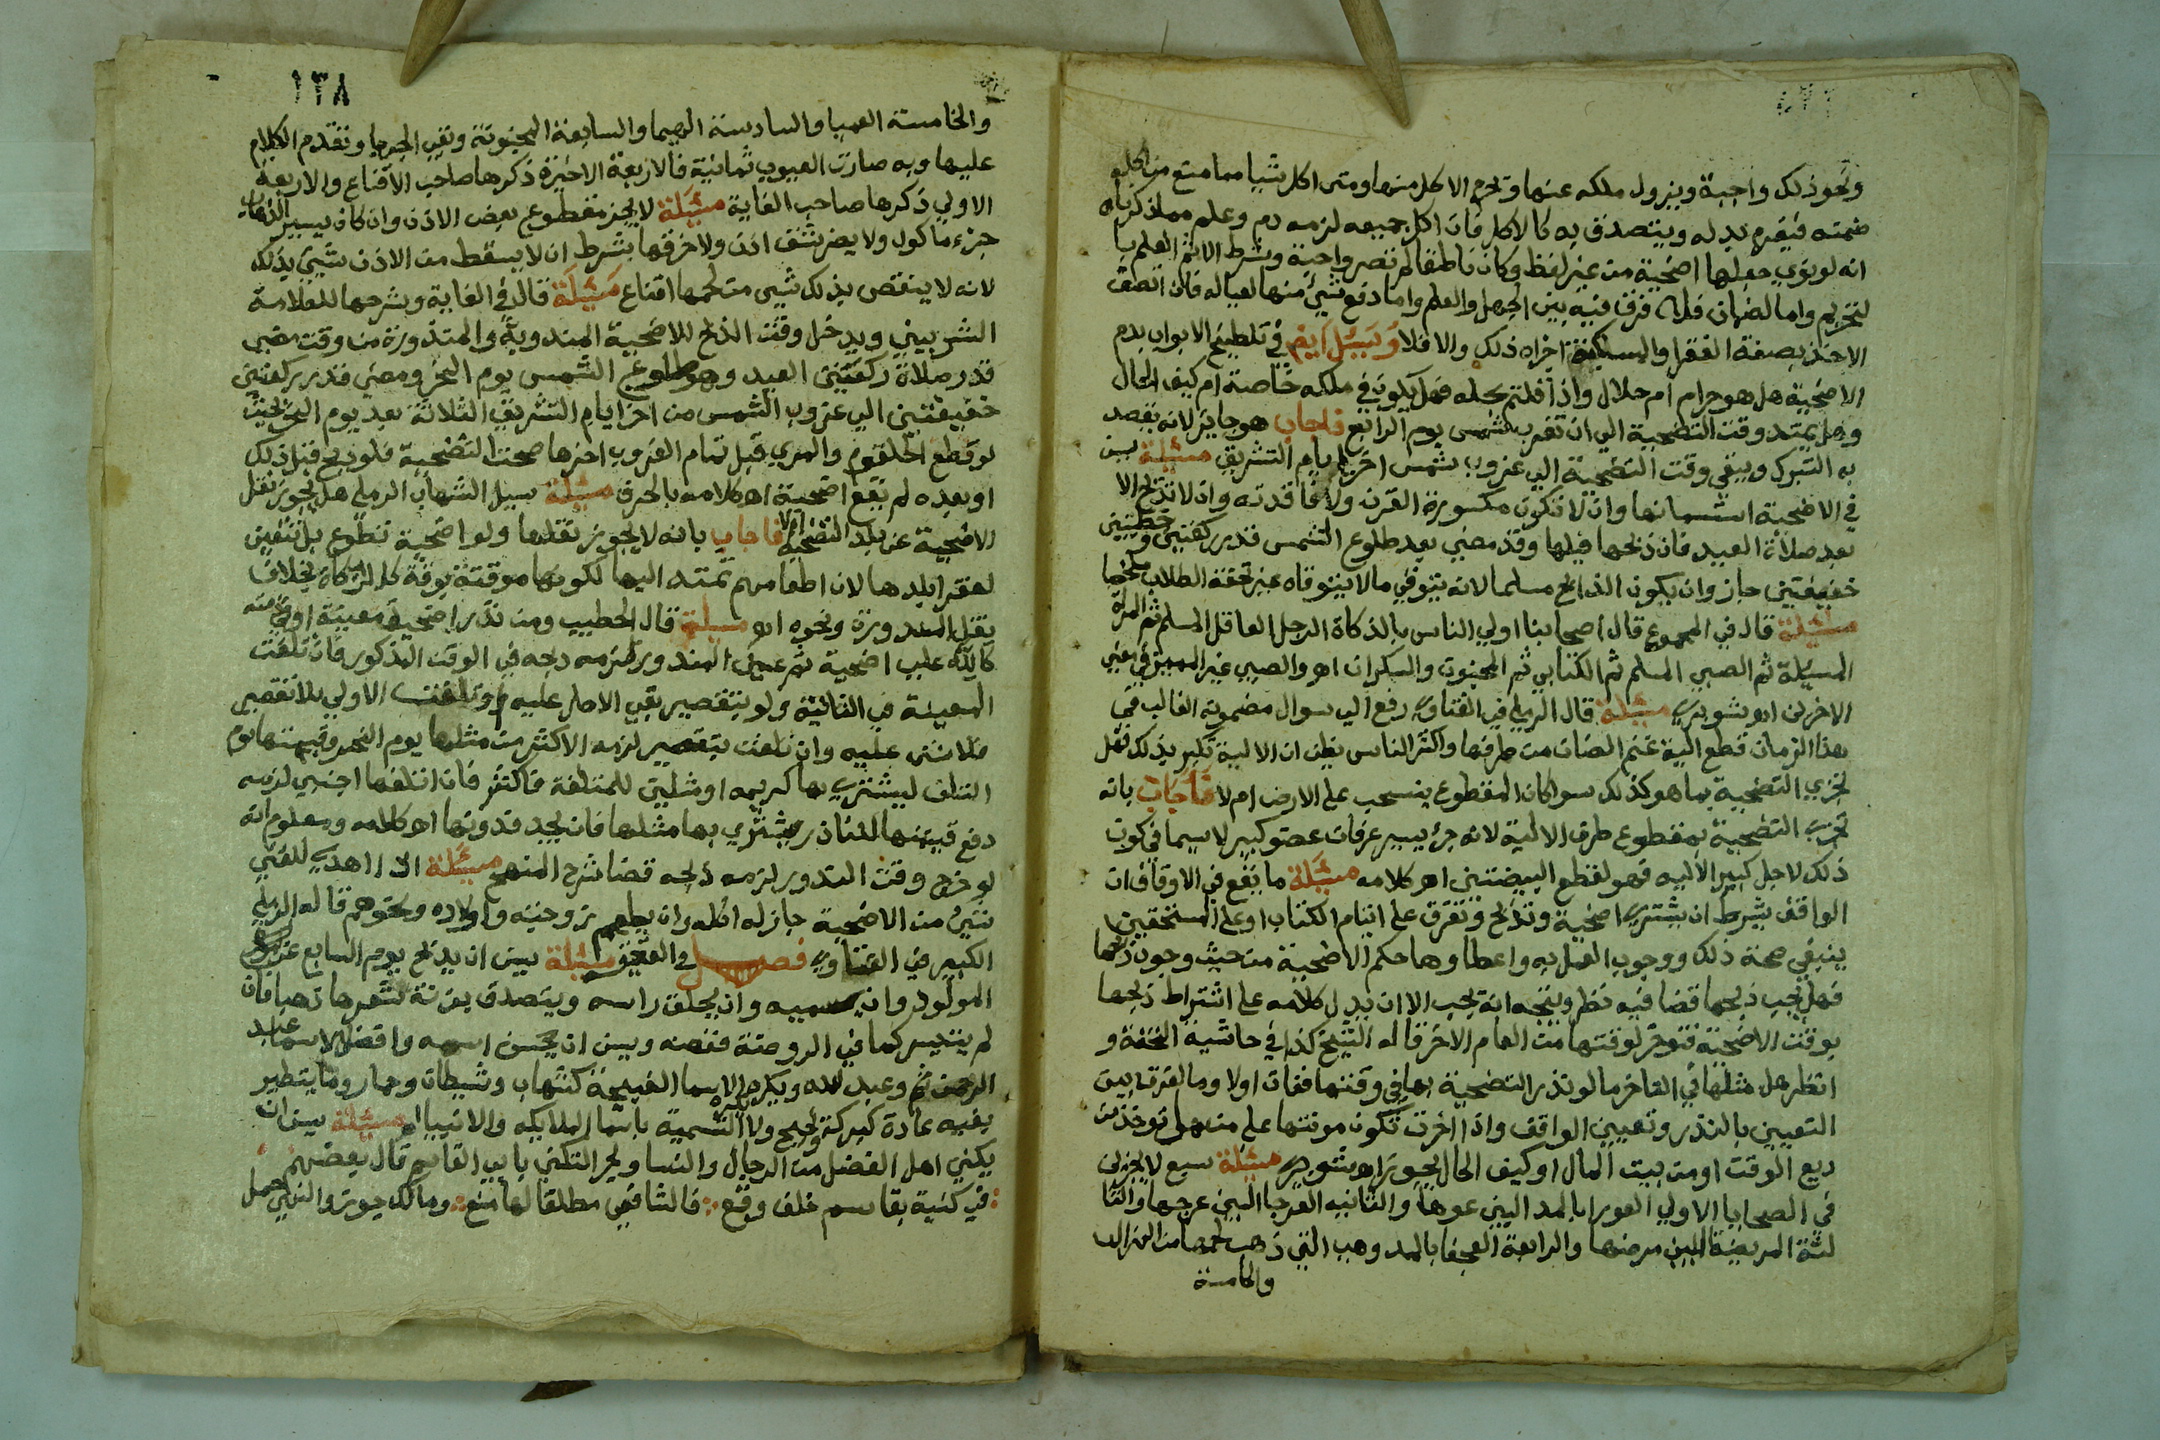 ونحو ذلك واجبة ويزول ملكه عنها وتحرم الاكل منها ومتى اكل شيا مما منع من اكله
ضمنه فيغرم بدله ويتصدق به كالاكل فان اكل جميعه لزمه دم وعلم مما ذكرناه
انه لو نوي جعلها اضحية من غير لفظ وكان ناطقا لم تصر واجبة وشرط الاثم العلم با
لتحريم واما الضمان فلا فرق فيه بين الجهل والعلم واما دفع شيئ منها لعياله فان اتصف
الاخذ بصفة الفقرا والمسكنة اجزاه ذلك والا فلا وسيل ايضا في تلطيخ الابواب بدم
الاضحية هل هو حرام ام حلال واذا قلتم بحله فهل يكون في ملكه خاصة ام كيف الحال
وهل يمتد وقت التضحية الي ان تغرب شمس يوم الرابع فاجاب هو جايز لانه يقصد
به التبرك ويبقي وقت التضحية الي غروب شمس اخر ايام التشريق مسئلة يسن
في الاضحية استسمانها وان لا تكون مكسورة القرن ولا فاقدته وان لا تذبح الا
بعد صلاة العيد فان ذبحها قبلها وقد مضي بعد طلوع الشمس قدر ركعتين وخطبتين
خفيفتين جاز وان يكون الذابح مسلما لانه يتوقي ما لا يتوقاه غيره تحفة الطلاب ملخصا
مسئلة قال في المجموع قال اصحابنا اولي الناس بالذكاة الرجل العاقل المسلم ثم المراة
المسلة ثم الصبي المسلم ثم الكتابي ثم المجنون والسكران اهـ والصبي غير المميز في معني
الاخرين اهـ شوبري مسئلة قال الرملي في الفتاوي رفع الي سوال مضمونه الغالب في
هذا الزمان قطع الية غنم الضان من طرفها واكثر الناس يظن ان الالية تكبر بذلك فهل
تجزي التضحية بما هو كذلك سوا كان المقطوع ينسحب علي الارض ام لا فاجاب بانه
تجزي التضحية بمقطوع طرف الالية لانه جزء يسير عرفا من عضو كبير لا سيما في كون
ذلك لاجل كبير الاليه فهو لقطع البيضتين اهـ كلامه مسئلة ما يقع في الاوقاف ان
الواقف يشرط ان يشتري اضحية وتذبح وتفرق علي ايتام الكتاب او علي المستحقين
ينبغي صحة ذلك ووجوب العمل به واعطاوها حكم الاضحية من حيث وجوب ذبحها
فهل يجب ذبحها قضا فيه نظر ويتجه انه يجب الا ان يدل كلامه علي اشتراط ذبحها
بوقت الاضحية فتوخر لوقتها من العام الاخر قاله الشيخ كذا في حاشية التحفة و
انظر هل مثلها في التاخر ما لو نذر التضحية بها في وقتها ففات اولا وما الفرق بين
التعيين بالنذر وتعيين الواقف واذا اخرت تكون مونتها علي من هل توخذ من
ريع الوقف او من بيت المال او كيف الحال يجوز اهـ شوبري مسئلة سبع لا يجزين
في الضحايا الاولي العورا بالمد البين عورها والثانيه العرجا البين عرجها والثا
لثة المريضة البين مرضها والرابعة العجفا بالمد وهي التي ذهب لحمها من الهزال
والخامسة
١٣٨
والخامسة العميا والسادسة الهيما والسابعة المجنونة وبقي الجربا وتقدم الكلام
عليها وبه صارت العيوب ثمانية فالاربعة الاخيرة ذكرها صاحب الاقناع والاربعة
الاولي ذكرها صاحب الغاية مسئلة لا يجز مقطوع بعض الاذن وان كان يسير الذهاب
جزء ماكول ولا يضر شق اذن ولا خرقها بشرط ان لا يسقط من الاذن شيئ بذلك
لانه لا ينقص بذلك شيي من لحمها اقناع مسئلة قال في الغاية وشرحها للعلامة
الشربيني ويدخل وقت الذبح للاضحية المندوبة والمنذورة من وقت مضي
قدر صلاة ركعتين العيد وهو طلوع الشمس يوم النحر ومضي قدر ركعتين
خفيفتين الي غروب الشمس من اخر ايام التشريق الثلاثة بعد يوم النحر بحيث
لو قطع الحلقوم والمري قبل تمام الغروب اخرها صحت التضحية فلو ذبح قبل ذلك
او بعده لم يقع اضحية اهـ كلامه بالحرف مسئلة سيل الشهاب الرملي هل يجوز نقل
الاضحية عن بلد التضحية ام لا فاجاب بانه لا يجوز نقلها ولو اضحية تطوع بل تتعين
لفقرا بلدها لان اطماعهم تمتد اليها لكونها موقتة بوقت كالزكاة بخلاف
نقل المنذورة ونحوه اهـ مسئلة قال الخطيب ومن نذر اضحية معينة او في ذمته
كلله علي اضحية ثم عين المنذور لزمه ذبحه في الوقت المذكور فان تلفت
المعينة في الثانية ولو بتقصير بقي الاصل عليه او تلفت الاولي بلا تقصير
فلا شي عليه وان تلفت بتقصير لزمه الاكثر من مثلها يوم النحر وقيمتها يوم
التلف ليشتري بها كريمه او مثلين للمتلفة فاكثر فان اتلفها اجنبي لزمه
دفع قيمتها للناذر يشتري بها مثلها فان لم يجد فدونها اهـ كلامه ومعلوم انه
لو خرج وقت المنذور لزمه ذبحه قضا شرح المنهج مسئلة الا اذا اهدي للغني
شيئ من الاضحية جاز له اكله وان يطعم زوجته واولاده ونحوهم قاله الرملي
الكبير في الفتاوي فصل في العقيق مسئلة يسن ان يذبح يوم السابع عن
المولود وان يسميه وان يحلق راسه ويتصدق بزنة شعرها ذهبا فان
لم يتيسر كما في الروضة ففضه ويسن ان يحسن اسمه وافضل الاسما عبد
الرحمن ثم وعبد الله ويكره الاسما القبيحة كشهاب وشيطان وحمار وما يتطير
بفيه عادة كبركة ونجيح ولا تكره التسمية باسما الملايكه والانبيا اهـ مسئلة يسن ان
يكني اهل الفضل من الرجال والنسا ويحر التكني بابي القاسم قال بعضهم
في كنية بقاسم خلف وقع فالشافعي مطلقا لها منع ومالك جوز والنهي حمل